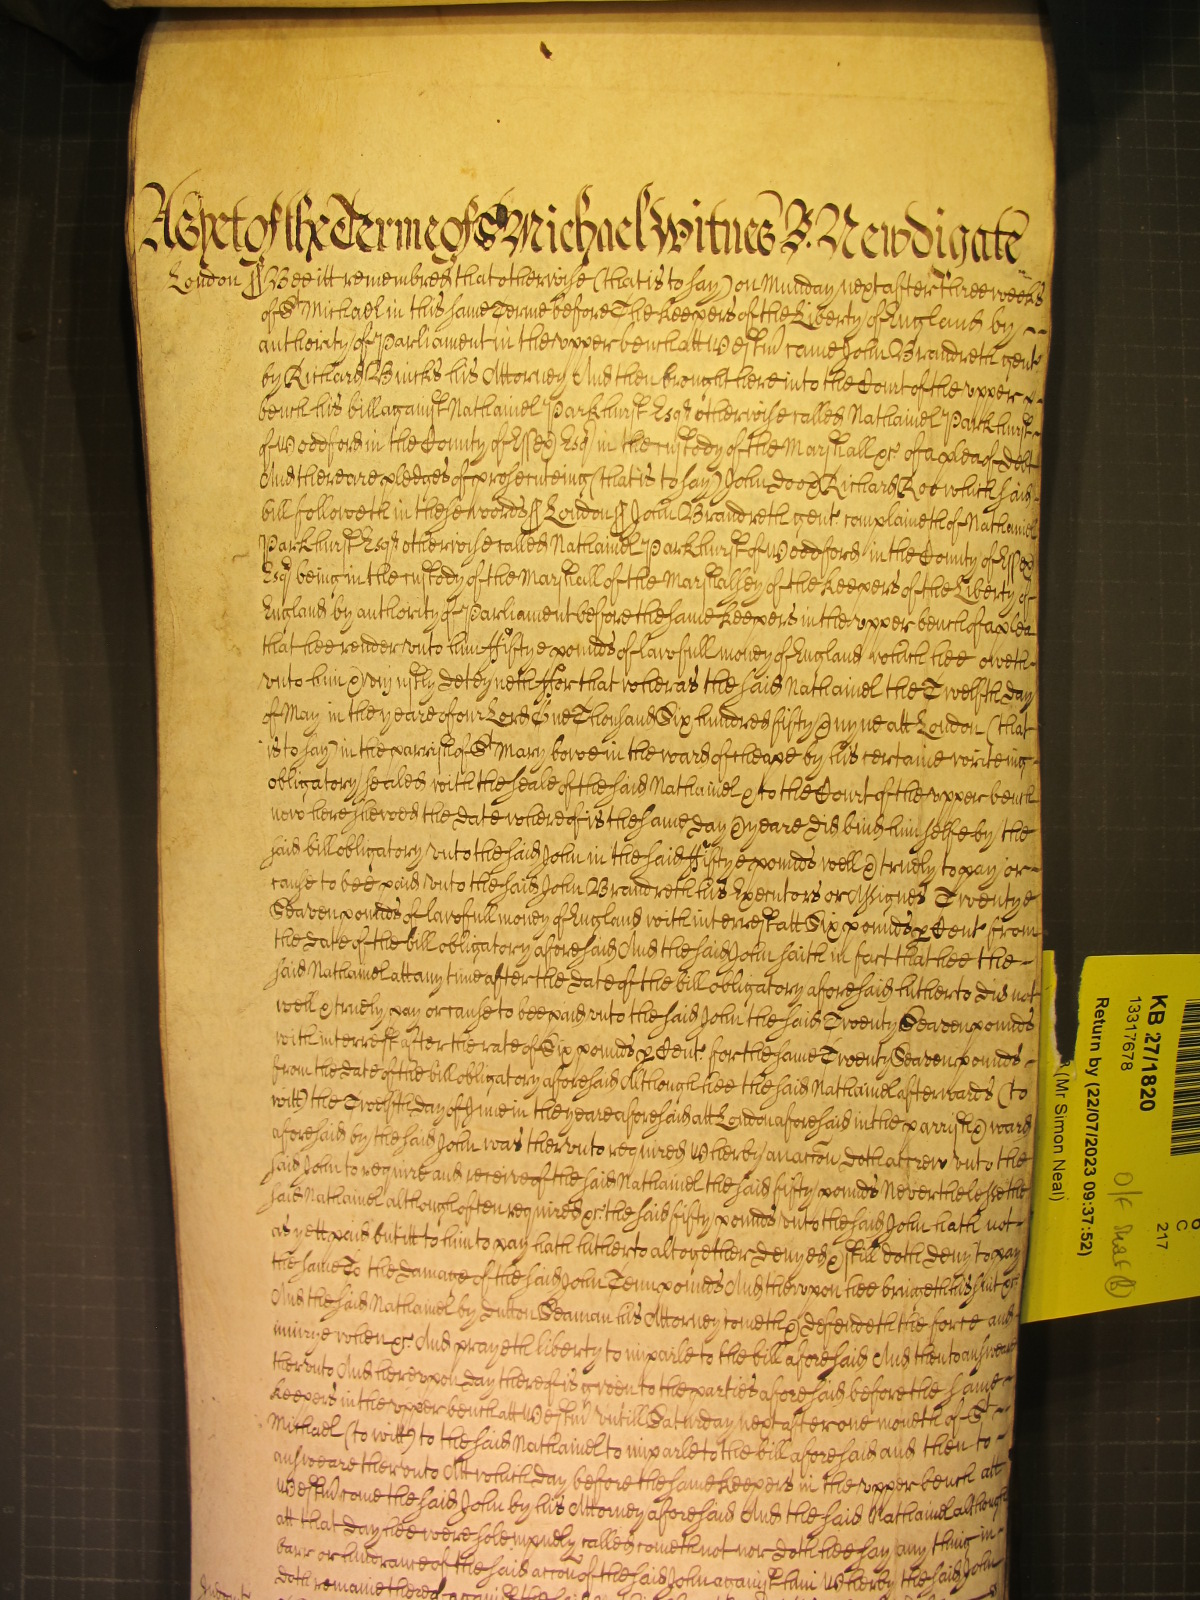 As yet of the Terme of St Michael Witnes R: Newdigate
London ss Bee itt remembred that otherwise (that is to say) on Munday next after three weekes
of St Michael in this same Terme before The Keepers of the Liberty of England by
authority of Parliament in the upper bench att Westm came John Brandreth gent
by Richard Bincks his Attorney And then brought here into the Court of the upper
bench his bill against Nathaniel Parkhurst Esqr otherwise called Nathaniel Parkhurst
of Woodford in the County of Essex Esqr in the custody of the Marshall &c of a plea of debt
And there are pledges of prosecuteing (that is to say) John Doo & Richard Roe which said
bill followeth in these words ss London ss John Brandreth gent complaineth of Nathaniel
Parkhurst Esqr otherwise called Nathaniel Parkhurst of Woodford in the County of Essex
Esqr being in the custody of the Marshall of the Marshallsey of the Keepers of the Liberty of
England by authority of Parliament before the same Keepers in the upper bench of a plea
that hee render unto him ffiftye pounds of lawfull money of England which hee oweth
unto him & uniustly deteyneth ffor that wheras the said Nathaniel the Twelfth day
of May in the yeare of our Lord One Thousand Six hundred fifty & nyne att London (that
is to say) in the parrish of St Mary bowe in the ward of cheape by his certaine writeing
obligatory sealed with the seale of the said Nathaniel & to the Court of the upper bench
now here shewed the date whereof is the same day & yeare did bind him selfe by the
said bill obligatory unto the said John in the said ffiftye pounds well & truely to pay or
cause to bee paid unto the said John Brandreth his Executors or Assignes Twentye
Seaven pounds of lawfull money of England with interrest att Six pounds p Cent from
the date of the bill obligatory aforesaid And the said John saith in fact that hee the
said Nathaniel att any time after the date of the bill obligatory aforesaid hitherto did not
well & truely pay or cause to bee paid unto the said John the said Twenty Seaven pounds
with interrest after the rate of Six pounds p Cent for the same Twenty Seaven pounds
from the date of the bill obligatory aforesaid Although hee the said Nathaniel afterwards (to
witt) the Twelfth day of June in the yeare aforesaid att London aforesaid in the parrish & ward
aforesaid by the said John was therunto required Wherby an accon doth accrew unto the
said John to require and receive of the said Nathaniel the said fifty pounds Neverthelesse the
said Nathaniel although often required &c the said fifty pounds unto the said John hath not
as yett paid but itt to him to pay hath hitherto altogether denyed & still doth deny to pay
the same To the damage of the said John Tenn pounds And therupon hee bringeth his suit &c
And the said Nathaniel by Dutton Seaman his Attorney cometh & defendeth the force and
iniurye when &c And prayeth liberty to imparle to the bill aforesaid And then to answeare
therunto And hereupon day thereof is given to the parties aforesaid before the same
Keepers in the upper bench att Westm untill Saturday next after one moneth of St
Michael (to witt) to the said Nathaniel to imparle to the bill aforesaid and then to
answeare therunto Att which day before the same Keepers in the upper bench att
Westm come the said John by his Attorney aforesaid And the said Nathaniel although
att that day hee were solempnely called cometh not nor doth hee say any thing in
barr or hindrance of the said accon of the said John against him Wherby the said John
doth remaine therof against the
KB 27/1820
13317678
Return by (22/07/2023 09:37:52)
(Mr Simon Neal)
C
217